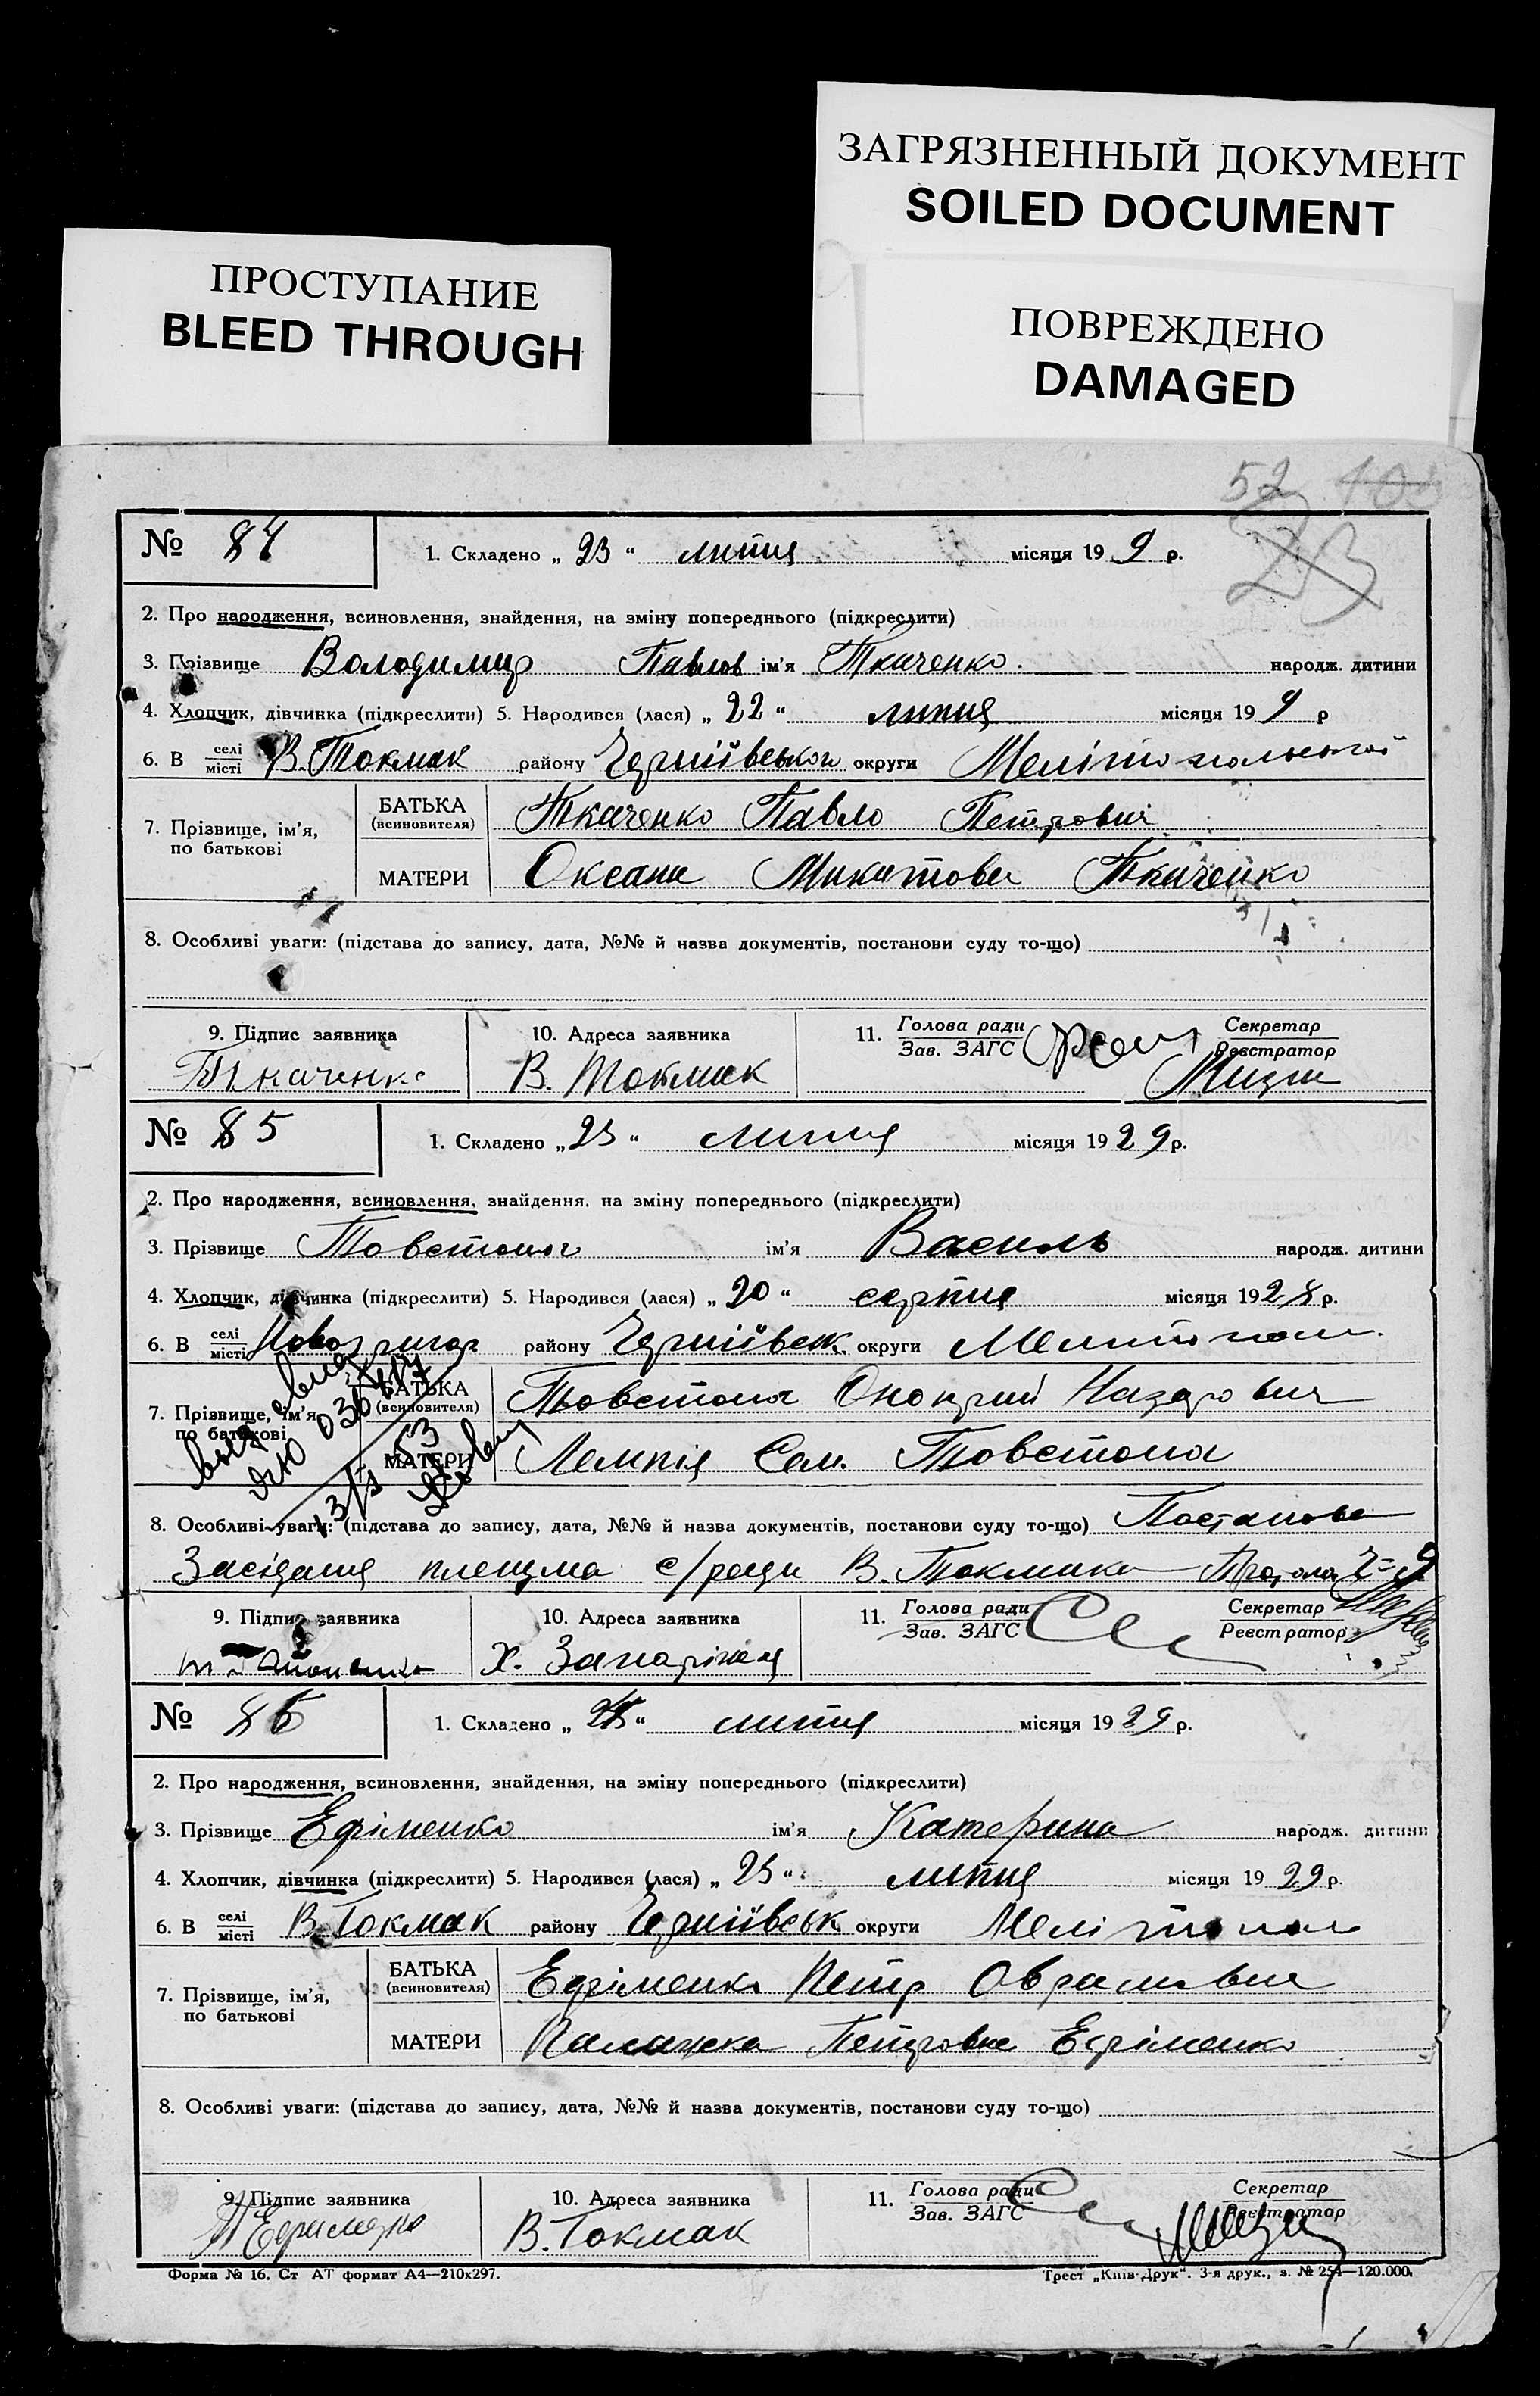 ЗАГРЯЗНЕННЫЙ ДОКУМЕНТ
SOILED DOCUMENT
ПРОСТУПАНИЕ
BLEED THROUGH
ПОВРЕЖДЕНО
DAMAGED
52
23
№ 84 1. Складено „ 23 “ липня місяця 19 9 р.
2. Про народження, всиновлення, знайдення, на зміну попереднього (підкреслити)
3. Прізвище Володимир Павлов ім'я Ткаченко. народж. дитини
4. Хлопчик, дівчинка (підкреслити) 5. Народився (лася) „ 22 “ липня місяця 19 9 р
6. В селі місті В. Токмак району Чернiївського округи Мелітопольської
7. Прізвище, ім'я, по батькові БАТЬКА (всиновителя) Ткаченко Павло Петрович
МАТЕРИ Оксана Микитова Ткаченко
8. Особливі уваги: (підстава до запису, дата, №№ й назва документів, постанови суду то-що)
9. Підпис заявника 10. Адреса заявника 11. Голова ради Зав. ЗАГС Секретар Реєстратор
Ткаченко В. Токмак
№ 85 1. Складено „ 23 “ липня місяця 19 29 р.
2. Про народження, всиновлення, знайдення, на зміну попереднього (підкреслити)
3. Прізвище Товстоног ім'я Василь народж. дитини
4. Хлопчик, дівчинка (підкреслити) 5. Народився (лася) „ 20 “ серпня місяця 19 28 р.
6. В селі місті району Чернiївськ. округи Мелитопол.
7. Прізвище, ім'я, по батькові БАТЬКА (всиновителя) Товстоног Оноприй Назарович
МАТЕРИ Сем. Товстоног
8. Особливі уваги: (підстава до запису, дата, №№ й назва документів, постанови суду то-що) Постанова
Засідання пленума с/ради В. Токмака
9. Підпис заявника 10. Адреса заявника 11. Голова ради Зав. ЗАГС Секретар Реєстратор
Х. Запоріжжя
№ 86 1. Складено „ “ липня місяця 19 29 р.
2. Про народження, всиновлення, знайдення, на зміну попереднього (підкреслити)
3. Прізвище Ефіменко ім'я Катерина народж. дитини
4. Хлопчик, дівчинка (підкреслити) 5. Народився (лася) „ 23 “ липня місяця 19 29 р.
6. В селі місті В. Токмак району Чернiївськ округи Мелітопол
7. Прізвище, ім'я, по батькові БАТЬКА (всиновителя) Ефіменко Петр Оврамович
МАТЕРИ Палажка Петровна Ефіменко
8. Особливі уваги: (підстава до запису, дата, №№ й назва документів, постанови суду то-що)
9. Підпис заявника 10. Адреса заявника 11. Голова ради Зав. ЗАГС Секретар Реєстратор
В. Токмак
Форма № 16. Ст АТ формат А4—210х297. Трест „Київ-Друк“. 3-я друк., з. № 254—120.000.